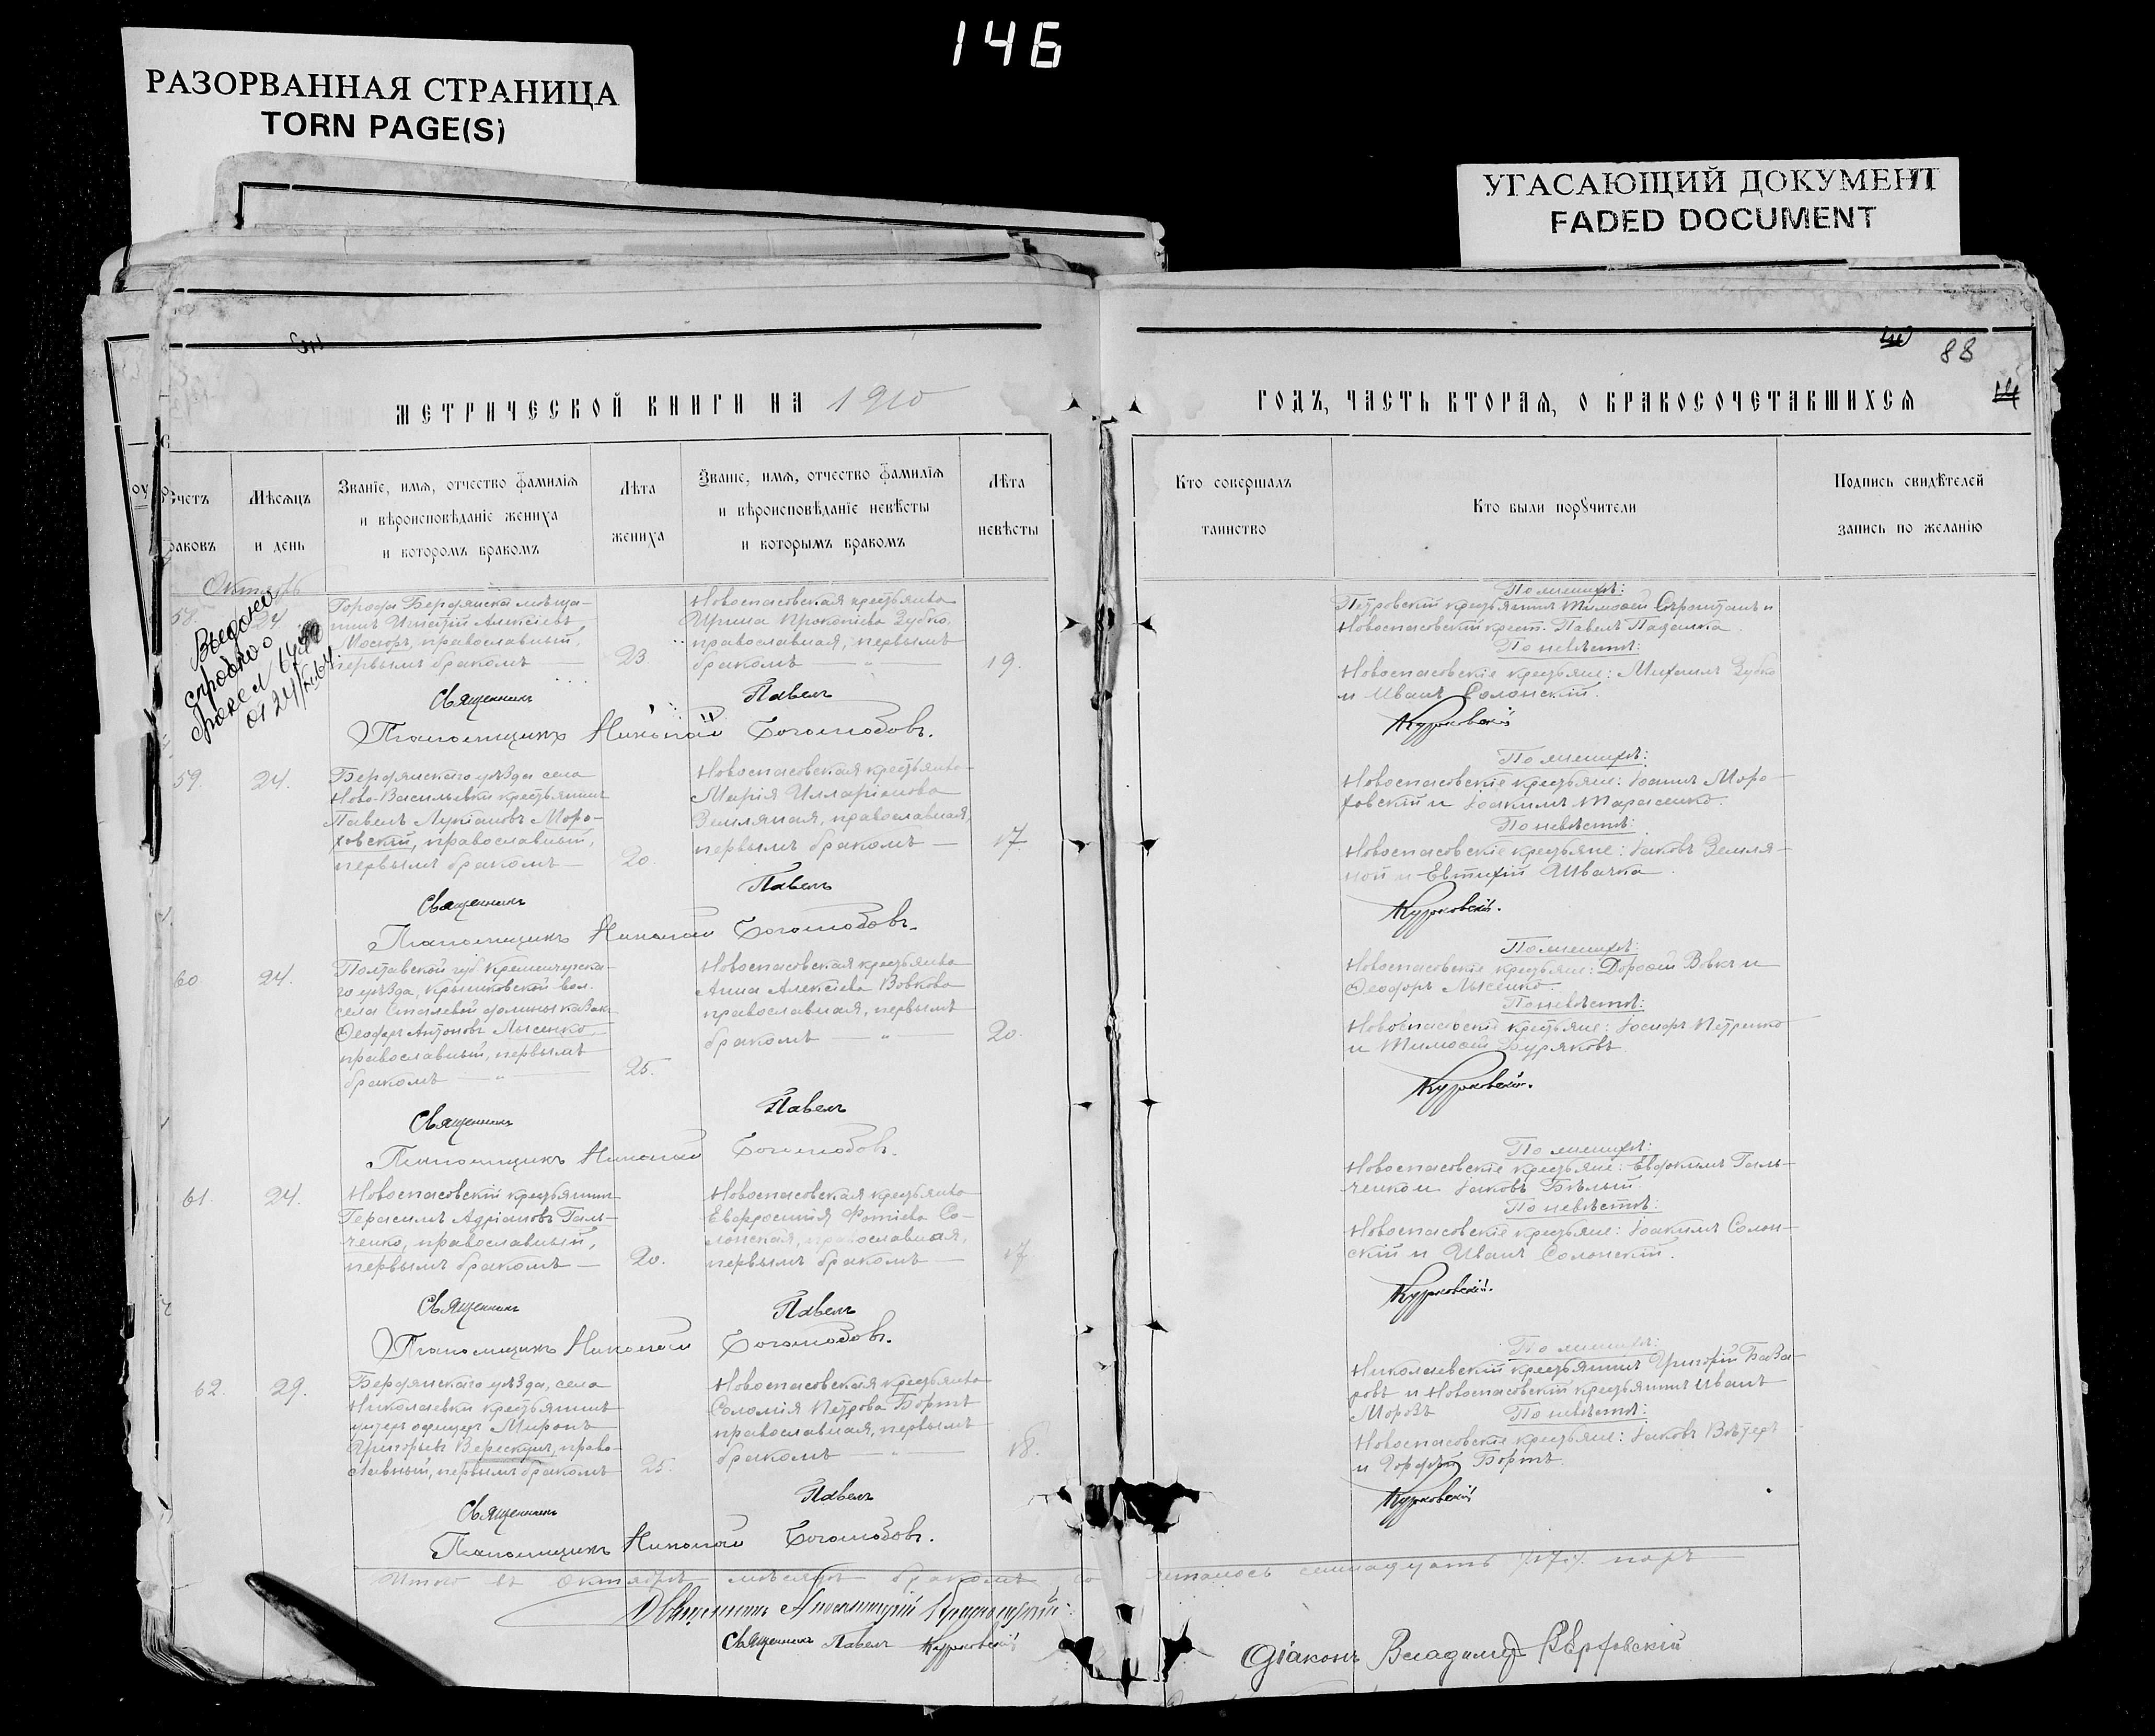 146
РАЗОРВАННАЯ СТРАНИЦА
TORN PAGE(S)
УГАСАЮЩИЙ ДОКУМЕНТ
FADED DOCUMENT
88
МЕТРИЧЕСКОЙ КНИГИ НА 1910
ГОДЪ, ЧАСТЬ ВТОРАЯ, О БРАКОСОЧЕТАВШИХСЯ
Счетъ
браковъ
Мѣсяцъ
и день
Званіе, имя, отчество фамилія
и вѣроисповѣданіе жениха
и которомъ бракомъ
Лѣта
жениха
Званіе, имя, отчество фамилія
и вѣроисповѣданіе невѣсты
и которымъ бракомъ
Лѣта
невѣсты
Кто совершалъ
таинство
Кто были поручители
Подпись свидѣтелей
запись по желанію
Октябрь
58.
24
Выдано
Города Бердянска мѣща-
нинъ Игнатій Алексіевъ
православный,
первымъ бракомъ —
23
Новоспасовская крестьянка
Ирина Прокопіева Зубко,
православная, первымъ
бракомъ — „
19.
По женихѣ:
Петровскій крестьянинъ Тимоѳей и
Новоспасовскій крест. Павелъ
По невѣстѣ:
Новоспасовскіе крестьяне: Михаилъ Зубко
и Иванъ Солонскій.
Священникъ Павелъ Курковскій
Псаломщикъ Николай Боголюбовъ.
59.
24.
Бердянскаго уѣзда села
Ново-Васильевки крестьянинъ
Павелъ Лукіановъ Моро-
ховскій, православный,
первымъ бракомъ —
20.
Новоспасовская крестьянка
Марія Илларіонова
Земляная, православная,
первымъ бракомъ —
17.
По женихѣ:
Новоспасовскіе крестьяне: Іоаннъ Моро-
ховскій и Іоакимъ Тарасенко.
По невѣстѣ:
Новоспасовскіе крестьяне: Іаковъ Земля-
ной и Евтихій Швачка.
Священникъ Павелъ Курковскій.
Псаломщикъ Николай Боголюбовъ.
60
24.
Полтавской губ. Кременчугска-
го уѣзда, Крыниковской вол.
села долины казакъ
Ѳеодоръ Антоновъ Лысенко
православный, первымъ
бракомъ — „ —
25.
Новоспасовская крестьянка
Анна Алексіева Вовкова
православная, первымъ
бракомъ — „ —
20.
По женихѣ:
Новоспасовскіе крестьяне: Дороѳей Вовкъ и
Ѳеодоръ Лысенко.
По невѣстѣ:
Новоспасовскіе крестьяне: Іосифъ Петренко
и Тимоѳей Буряковъ.
Священникъ Павелъ Курковскій.
Псаломщикъ Николай Боголюбовъ.
61.
24.
Новоспасовскій крестьянинъ
Герасимъ Адріановъ Галь-
ченко, православный,
первымъ бракомъ —
20.
Новоспасовская крестьянка
Евфросинія Фотіева Со-
лонская, православная,
первымъ бракомъ —
17
По женихѣ:
Новоспасовскіе крестьяне: Евдокимъ Галь-
ченко и Іаковъ Бѣлый.
По невѣстѣ:
Новоспасовскіе крестьяне: Іоакимъ Солон-
скій и Иванъ Солонскій.
Священникъ Павелъ Курковскій.
Псаломщикъ Николай Боголюбовъ.
62.
29.
Бердянскаго уѣзда, села
Николаевки крестьянинъ
унтеръ офицеръ Миронъ
Григорьевъ Верескунъ, право-
славный, первымъ бракомъ
25.
Новоспасовская крестьянка
Соломія Петрова Бортъ
православная, первымъ
бракомъ — „ —
18.
По женихѣ:
Николаевскій крестьянинъ Григорій База-
ровъ и Новоспасовскій крестьянинъ Иванъ
Морозъ
По невѣстѣ:
Новоспасовскіе крестьяне: Іаковъ Вѣтеръ
и Бортъ.
Священникъ Павелъ Курковскій
Псаломщикъ Николай Боголюбовъ.
Итого въ Октябрѣ мѣсяцѣ бракомъ со четалось семнадцать /17/ паръ
Священникъ
Священникъ Павелъ Курковскій
Діаконъ Владиміръ